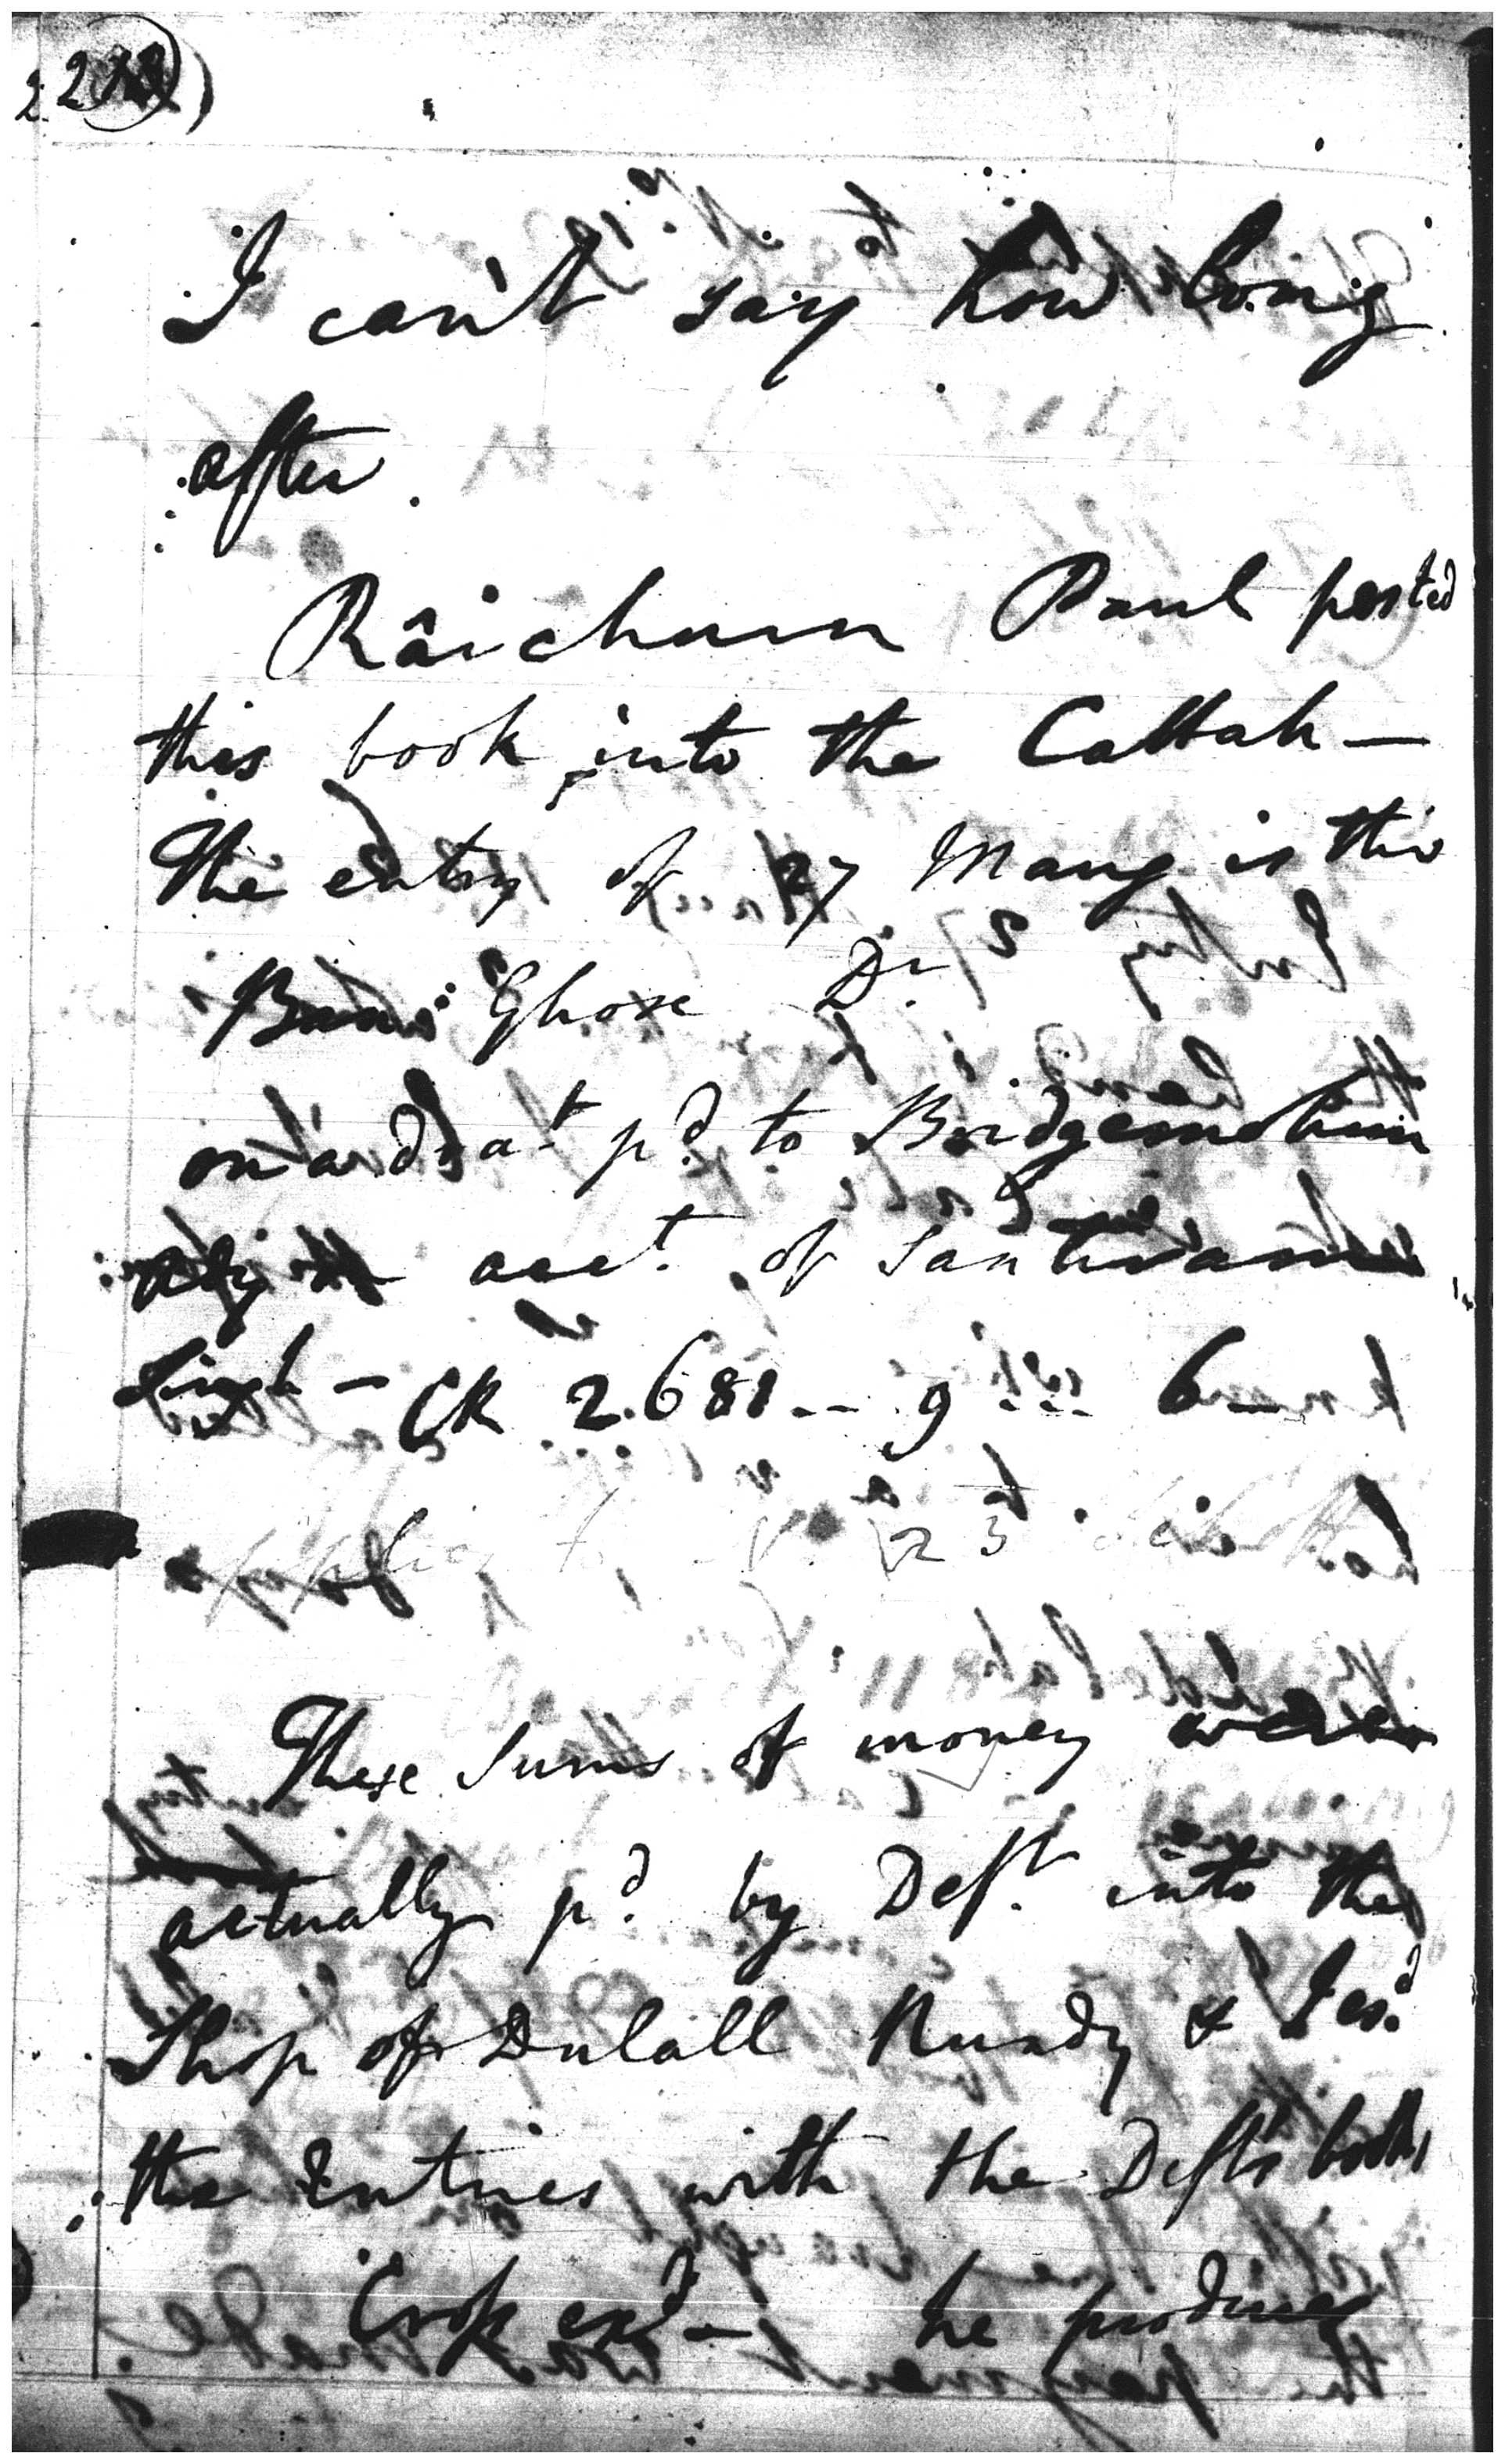 I can't say how long
after.
Râichurn Paul posted
this book into the Cattah —
The entry of 27 Maug is this
Ghose Dr
on a d a t pd. to Bridgemohun
acct. of Santiram
Singh — CR 2.681 -- 9 -- 6 —
to 23
These Sums of money were
actually pd. by Deft. into the
Shop of Dulall Nundy &
the Entries with the Defts books
Cross exd — he produces